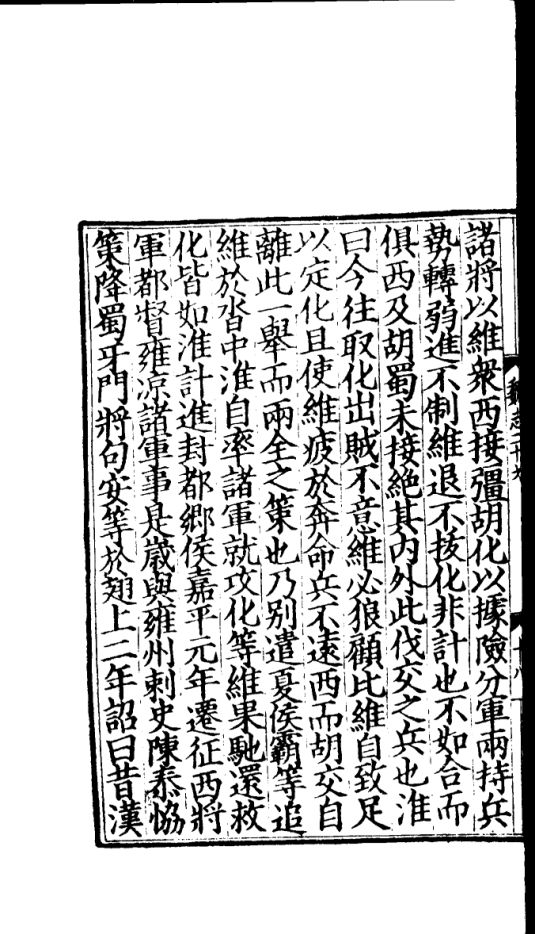 諸將以維衆西接彊胡化以據險分軍兩持兵
勢轉弱進不制維退不拔化非計也不如合而
俱西及胡蜀未接絶其内外此伐交之兵也淮
曰今往取化出賊不意維必狼顧比維自致足
以定化且使維疲於奔命兵不逺西而胡交自
離此一舉而兩全之策也乃别遣夏侯霸等追
維於沓中淮自率諸軍就攻化等維果馳還救
化皆如淮計進封都鄉侯嘉平元年遷征西將
軍都督雍凉諸軍事是歳與雍州刺史陳泰恊
策降蜀牙門將句安等於翅上二年詔曰昔漢